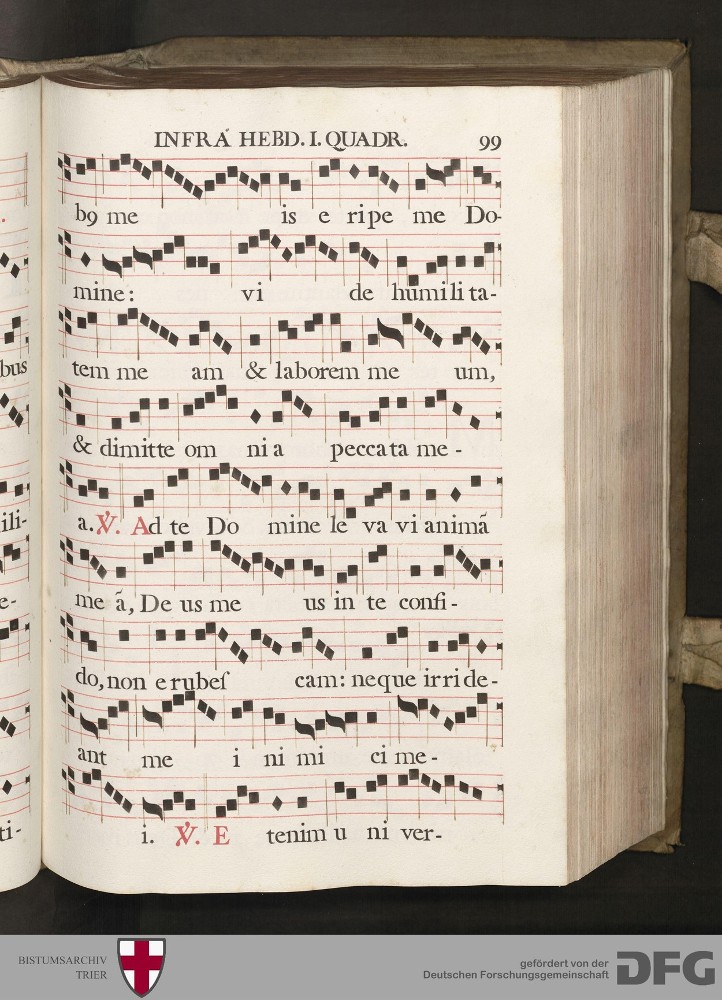 INFRÁ HEBD. I. QUADR. 99
b9 me is e ripe me Do-
mine: vi de humilita-
tem me am & laborem me um,
& dimitte om nia peccata me-
a. ℣. Ad te Do mine le va vi animã
me ã, De us me us in te confi-
do, non e rubeſ cam: neque irride-
ant me i ni mi ci me-
i. ℣. E tenim u ni ver-
bus
ili-
e-
ti-
BISTUMSARCHIV
TRIER
gefördert von der
Deutschen Forschungsgemeinschaft
DFG